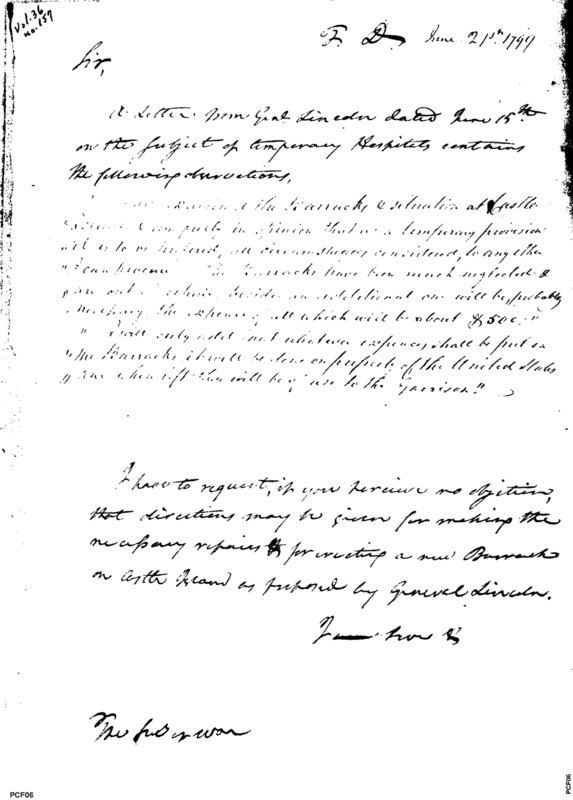 Vol. 36
no. 157
T D June 21st 1799
Sir,
A Letter from Genl Lincoln dated June 15th
on the subject of temporary Hospitals contains
the following observations,
the Barracks & situation at Castle
Island & am of opinion that as a temporary provision
it is to be preferred, all circumstances considered, to any other
I can procure. The Barracks have been much neglected &
are out of repair, beside an additional one will be, probably
necessary, the expence of all which will be about $500."
" I will only add that whatever expences shall be put on
the Barracks it will be done on property of the United States
when left they will be of use to the Garrison."
I have to request, if you perceive no objection,
that directions may be given for making the
necessary repairs & for erecting a new Barrack
on Castle Island as proposed by General Lincoln.
The Sec of War
PCF06
PCF06